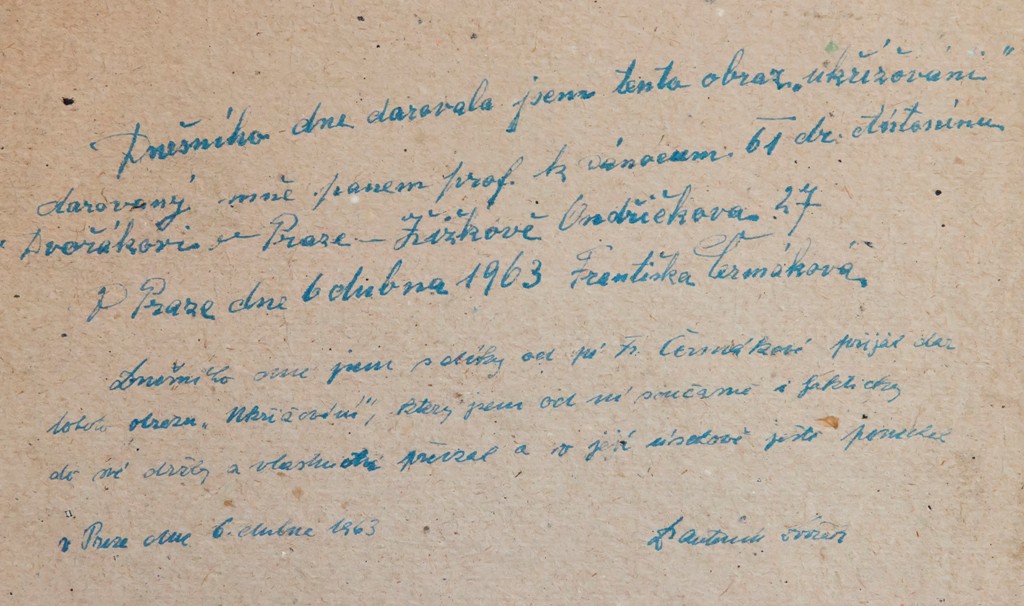 Dnešního dne darovala jsem tento obraz „ukřížování"
darovaný mně panem prof. k vánocum 61 dr. Antonínu
Dvořákovi v Praze – Žižkově Ondříčkova 27
V Praze dne 6 dubna 1963 Františka Čermáková
Dnešního dne jsem s díky od pí Fr. Čermákové přijal dar
tohoto obrazu „Ukřižování", který jsem od ní současně i fakticky
do mé držby a vlastnictví převzal a v její úschově ještě ponechal
v Praze dne 6. dubna 1963
Dr Antonín Dvořák